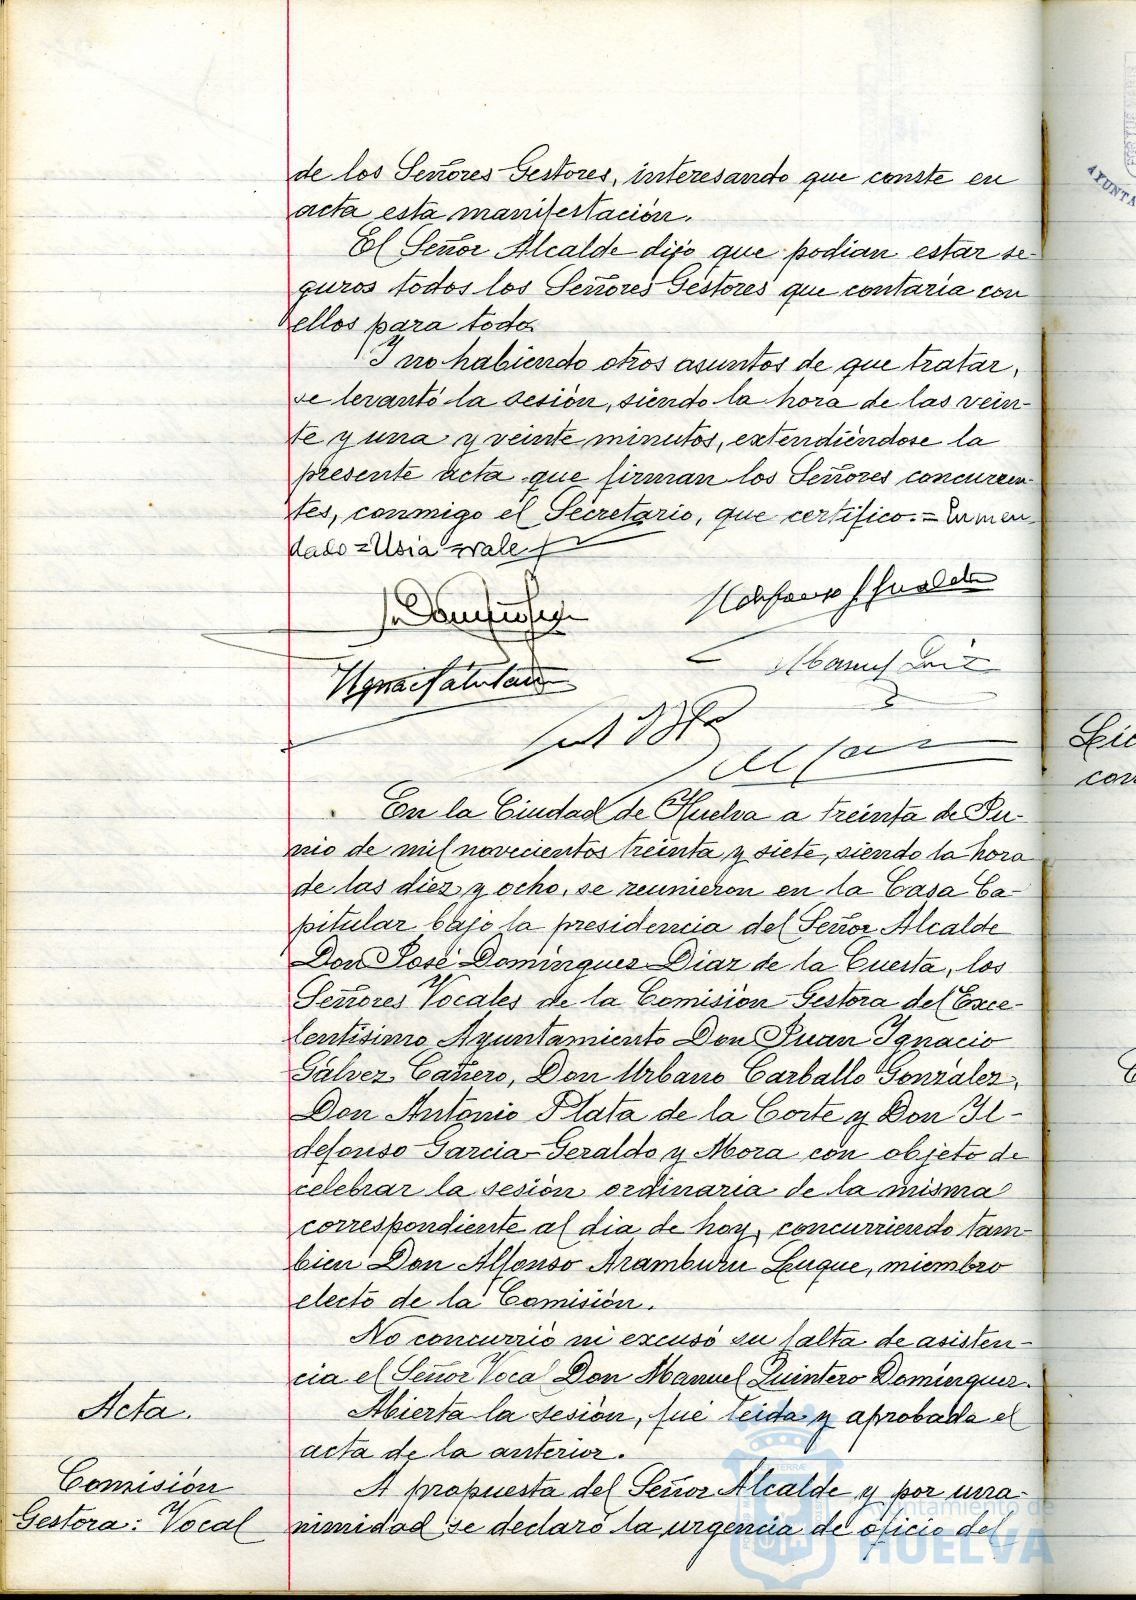 de los Señores Gestores, interesando que conste en
acta esta manifestación.
El Señor Alcalde dijo que podian estar se-
guros todos los Señores Gestores que contaría con
ellos para todo.
Y no habiendo otros asuntos de que tratar,
se levantó la sesión, siendo la hora de las vein-
te y una y veinte minutos, extendiéndose la
presente acta que firman los Señores concurren-
tes, conmigo el Secretario, que certifico.=Enmen-
dado=Usia=vale
En la Ciudad de Huelva a treinta de Ju-
nio de mil novecientos treinta y siete, siendo la hora
de las diez y ocho, se reunieron en la Casa Ca-
pitular bajo la presidencia del Señor Alcalde
Don José Dominguez Diaz de la Cuesta, los
Señores Vocales de la Comisión Gestora del Exce-
lentisimo Ayuntamiento Don Juan Ignacio
Gálvez Cañero, Don Urbano Carballo González,
Don Antonio Plata de la Corte y Don Il-
defonso Garcia-Geraldo y Mora con objeto de
celebrar la sesión ordinaria de la misma
correspondiente al dia de hoy, concurriendo tam-
bien Don Alfonso Aramburu Luque, miembro
electo de la Comisión.
No concurrió ni excusó su falta de asisten-
cia el Señor Vocal Don Manuel Quintero Dominguez.
Acta.
Abierta la sesión, fué leida y aprobada el
acta de la anterior.
Comisión
Gestora: Vocal
A propuesta del Señor Alcalde y por una-
nimidad se declaró la urgencia de oficio del
Ayuntamiento de
HUELVA